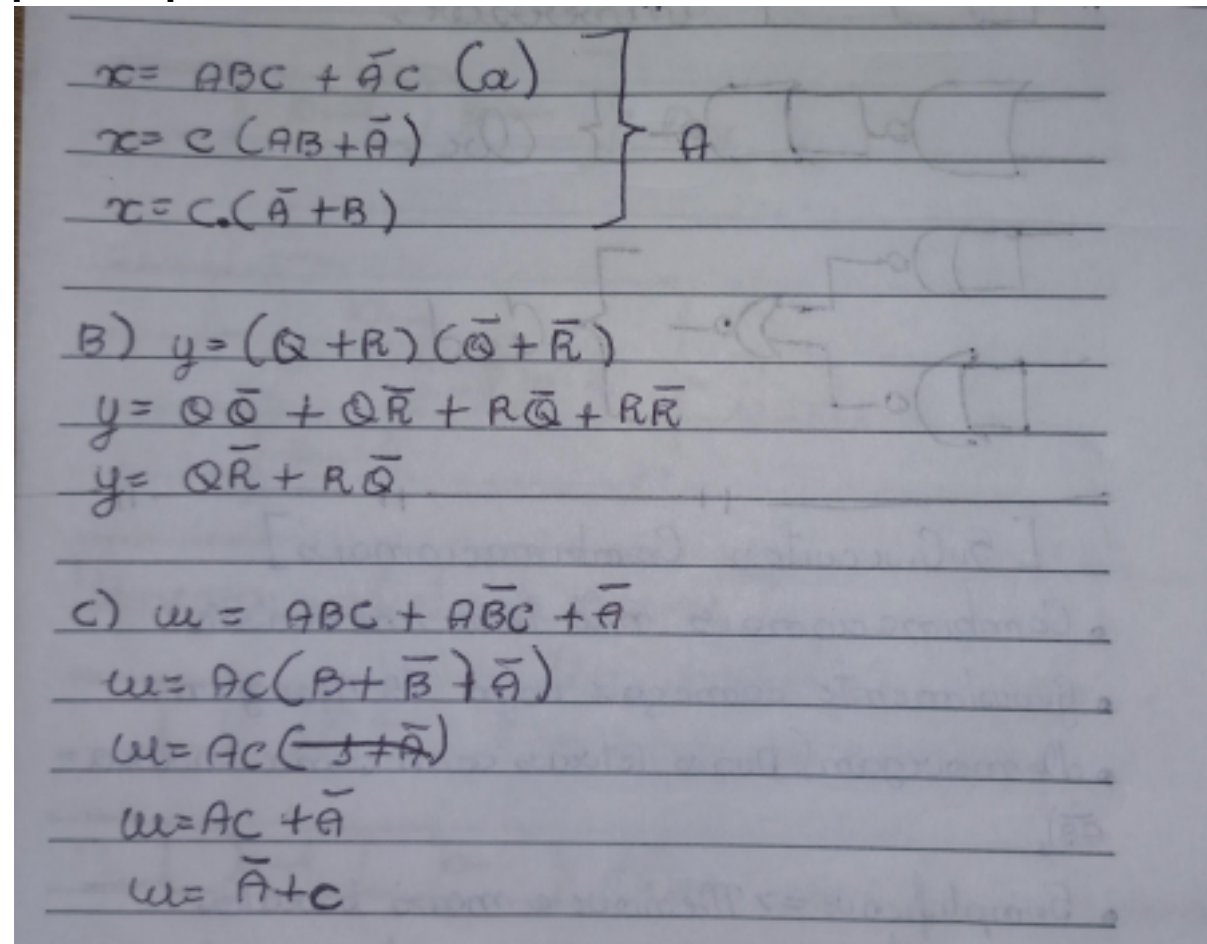 x= ABC + ĀC (a)
x= C (AB+Ā)
x= C.(Ā+B)
A
B) y= (Q+R)(Q̄+R̄)
y= QQ̄ + QR̄ + RQ̄ + RR̄
y= QR̄ + RQ̄
C) w = ABC + AB̄C + Ā
w= AC(B+B̄+Ā)
w= AC(1+Ā)
w=AC+Ā
w= Ā+C